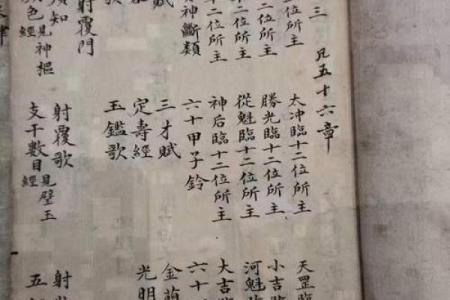 三 凡五十六章
位所主 太冲臨十二位所主 天罡臨
十二位所主 勝光臨十二位所主 小吉臨
十二位所主 從魁臨十二位所主 河魁臨
十二位所主 神后臨十二位所主 大吉
神斷類 六十甲子鈴 六十
賦 三才賦 金
定壽經 光明
歌 玉鑑歌
射覆門
須知 見神樞經 射覆歌 射
色 支干數目 見璧玉經 五